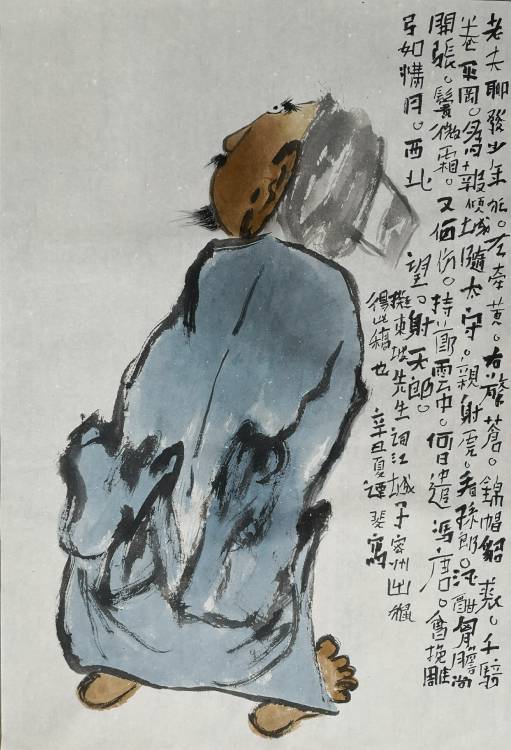 老夫聊發少年狂。左牽黃。右擎蒼。錦帽貂裘。千騎
卷平岡。為報傾城隨太守。親射虎。看孫郎。酒酣胸膽尚
開張。鬢微霜。又何妨。持節雲中。何日遣馮唐。會挽雕
弓如滿月。西北
望。射天郎。
擬東坡先生詞江城子密州出獵
得此稿也 辛丑夏譚斐寫